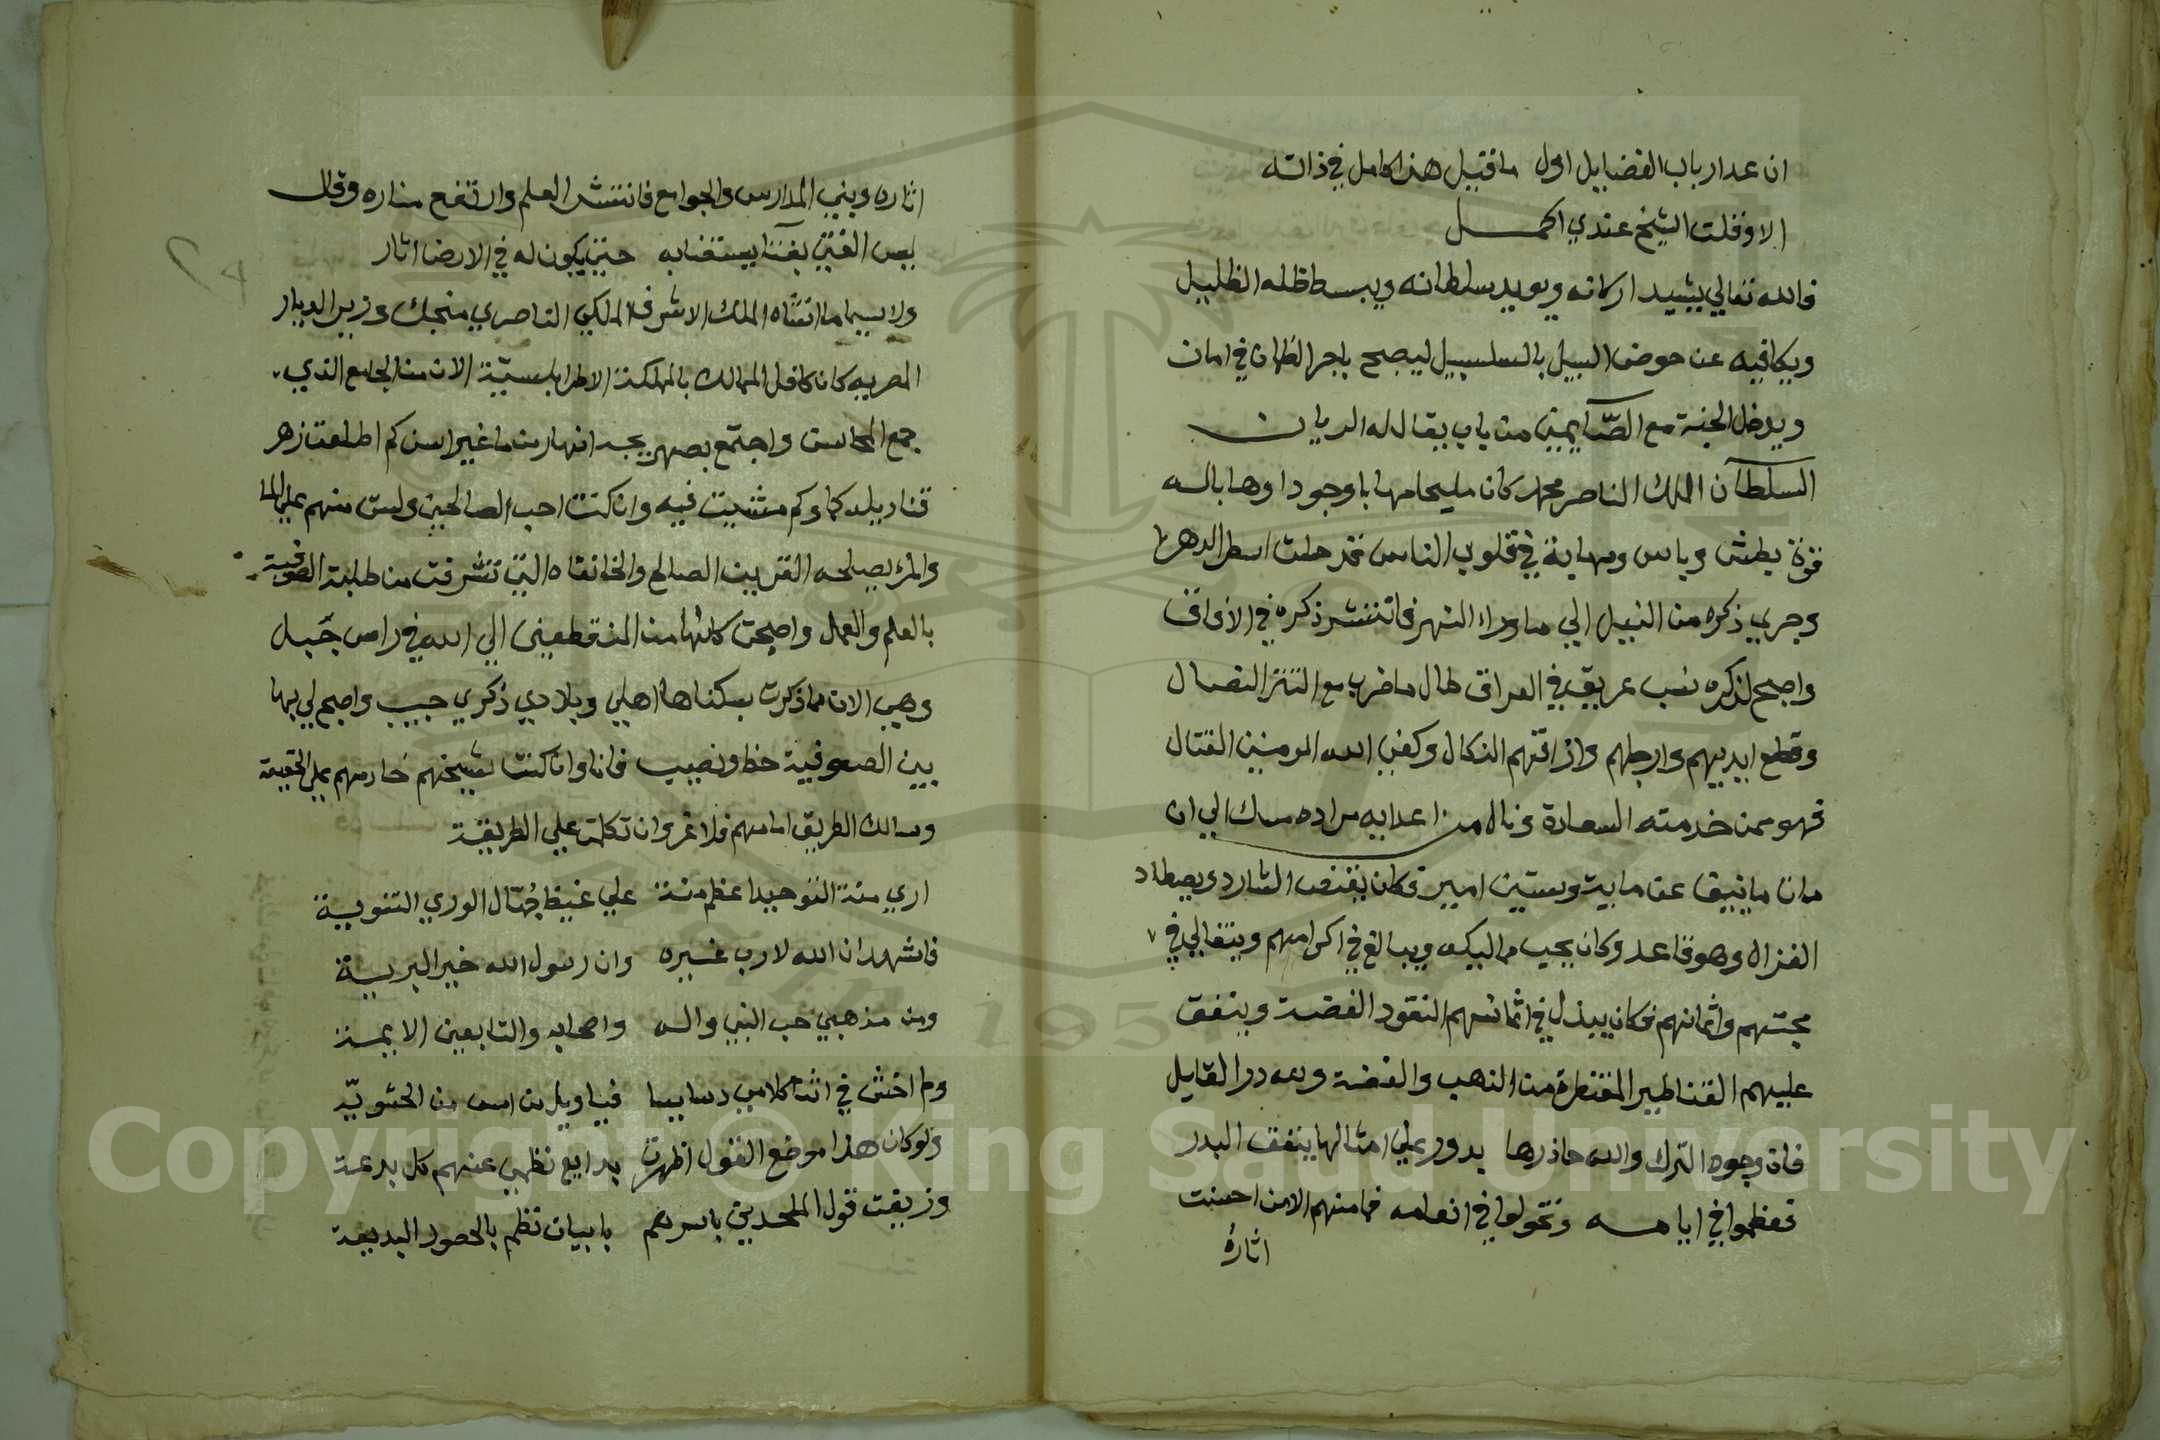 ان عد ارباب الفضايل اول ما قيل هذا كامل في ذاته
الا وقلت الشيخ عندي اكمــل
فالله تعالي يشيد اركانه ويويد سلطانه ويبسط ظله الظليل
ويكافيه عن حوض السبيل بالسلسبيل ليصبح باجر الظمان في امان
ويدخل الجنة مع الصّايمين من باب يقال له الريان
السلطان الملك الناصر محمد كان مليحا مهابا وجودا وهابا له
قوة بطش وباس ومهابة في قلوب الناس
وجري ذكره من النيل الي ماوراء النهر فانتشر ذكره في الافاق
واصبح لذكره نسب عريق في العراق طال ما ضرب مع التتر النصال
وقطع ايديهم وارجلهم واذاقهم النكال وكفي الله المومنين القتال
فهو ممن خدمته السعادة ونال من اعدايه مراده مسك الي ان
مات ما نيف عن مايت وستين امير وكان يقنص الشارد ويصطاد
الغزاله وهو قاعد وكان يحب مماليكه ويبالغ في اكرامهم ويتغالي في
محبتهم واثمانهم فكان يبذل في اثمانهم النقود الفضة وينفق
عليهم القناطير المقنطرة من الذهب والفضة ولله در القايل
فان وجوه الترك والله حاذرها بدور علي امثالها ينفق البدر
فعظموا في ايامـــه وتخولوا في انعامه فما منهم الا من احسنت
اثارهُ
اثاره وبني المدارس والجوامع فانتشر العلم وارتفع مناره وقال
ليس الفتي بفتا يستضابه حتي يكون له في الارض اثار
ولا سيما ما انشاه الملك الاشرف المالكي الناصري منجك وزير الديار
المصريه كان كافل الممالك بالمملكة الاطرابلسيّة الان من الجامع الذي
جمع المحاسن واجتمع بصهريجه انهار من ما غير اسن كم اطلعت زهر
قناديله كما وكم مشيت فيه وان كنت احب الصالحين ولست منهم علي الما
والمرء يصلحه القرين الصالح والخانقاه التي تشرفت من طلبة الصوفية
بالعلم والعمل واصبحت كانها من المنقطعين الي الله في راس جَبل
وهي الان مما ذكرت بسكناها اهلي وبلادي ذكري حبيب واصبح لي بها
بين الصوفية حظ ونصيب فانا وان كنت لشيخهم خادمهم علي الحقيقة
وسالك الطريق امامهم فلا غرو ان تكلمت علي الطريقة
اري منة التوحيد اعظم منة علي غيظ جُهّال الوري الثنوية
فاشهد ان الله لا رب غيره وان رسول الله خير البرية
ومن مذهبي حب النبي واله واصحابه والتابعين الايمة
ولم اخش في اثنا كلامي دسايسا فيا ويل من امسي من الحشويّه
ولو كان هذا موضع القول اظهرت بدايع نظمي عنهم كل بدعة
وزيفت قول الملحدين باسرهم بابيات نظم بالحصور البديعة